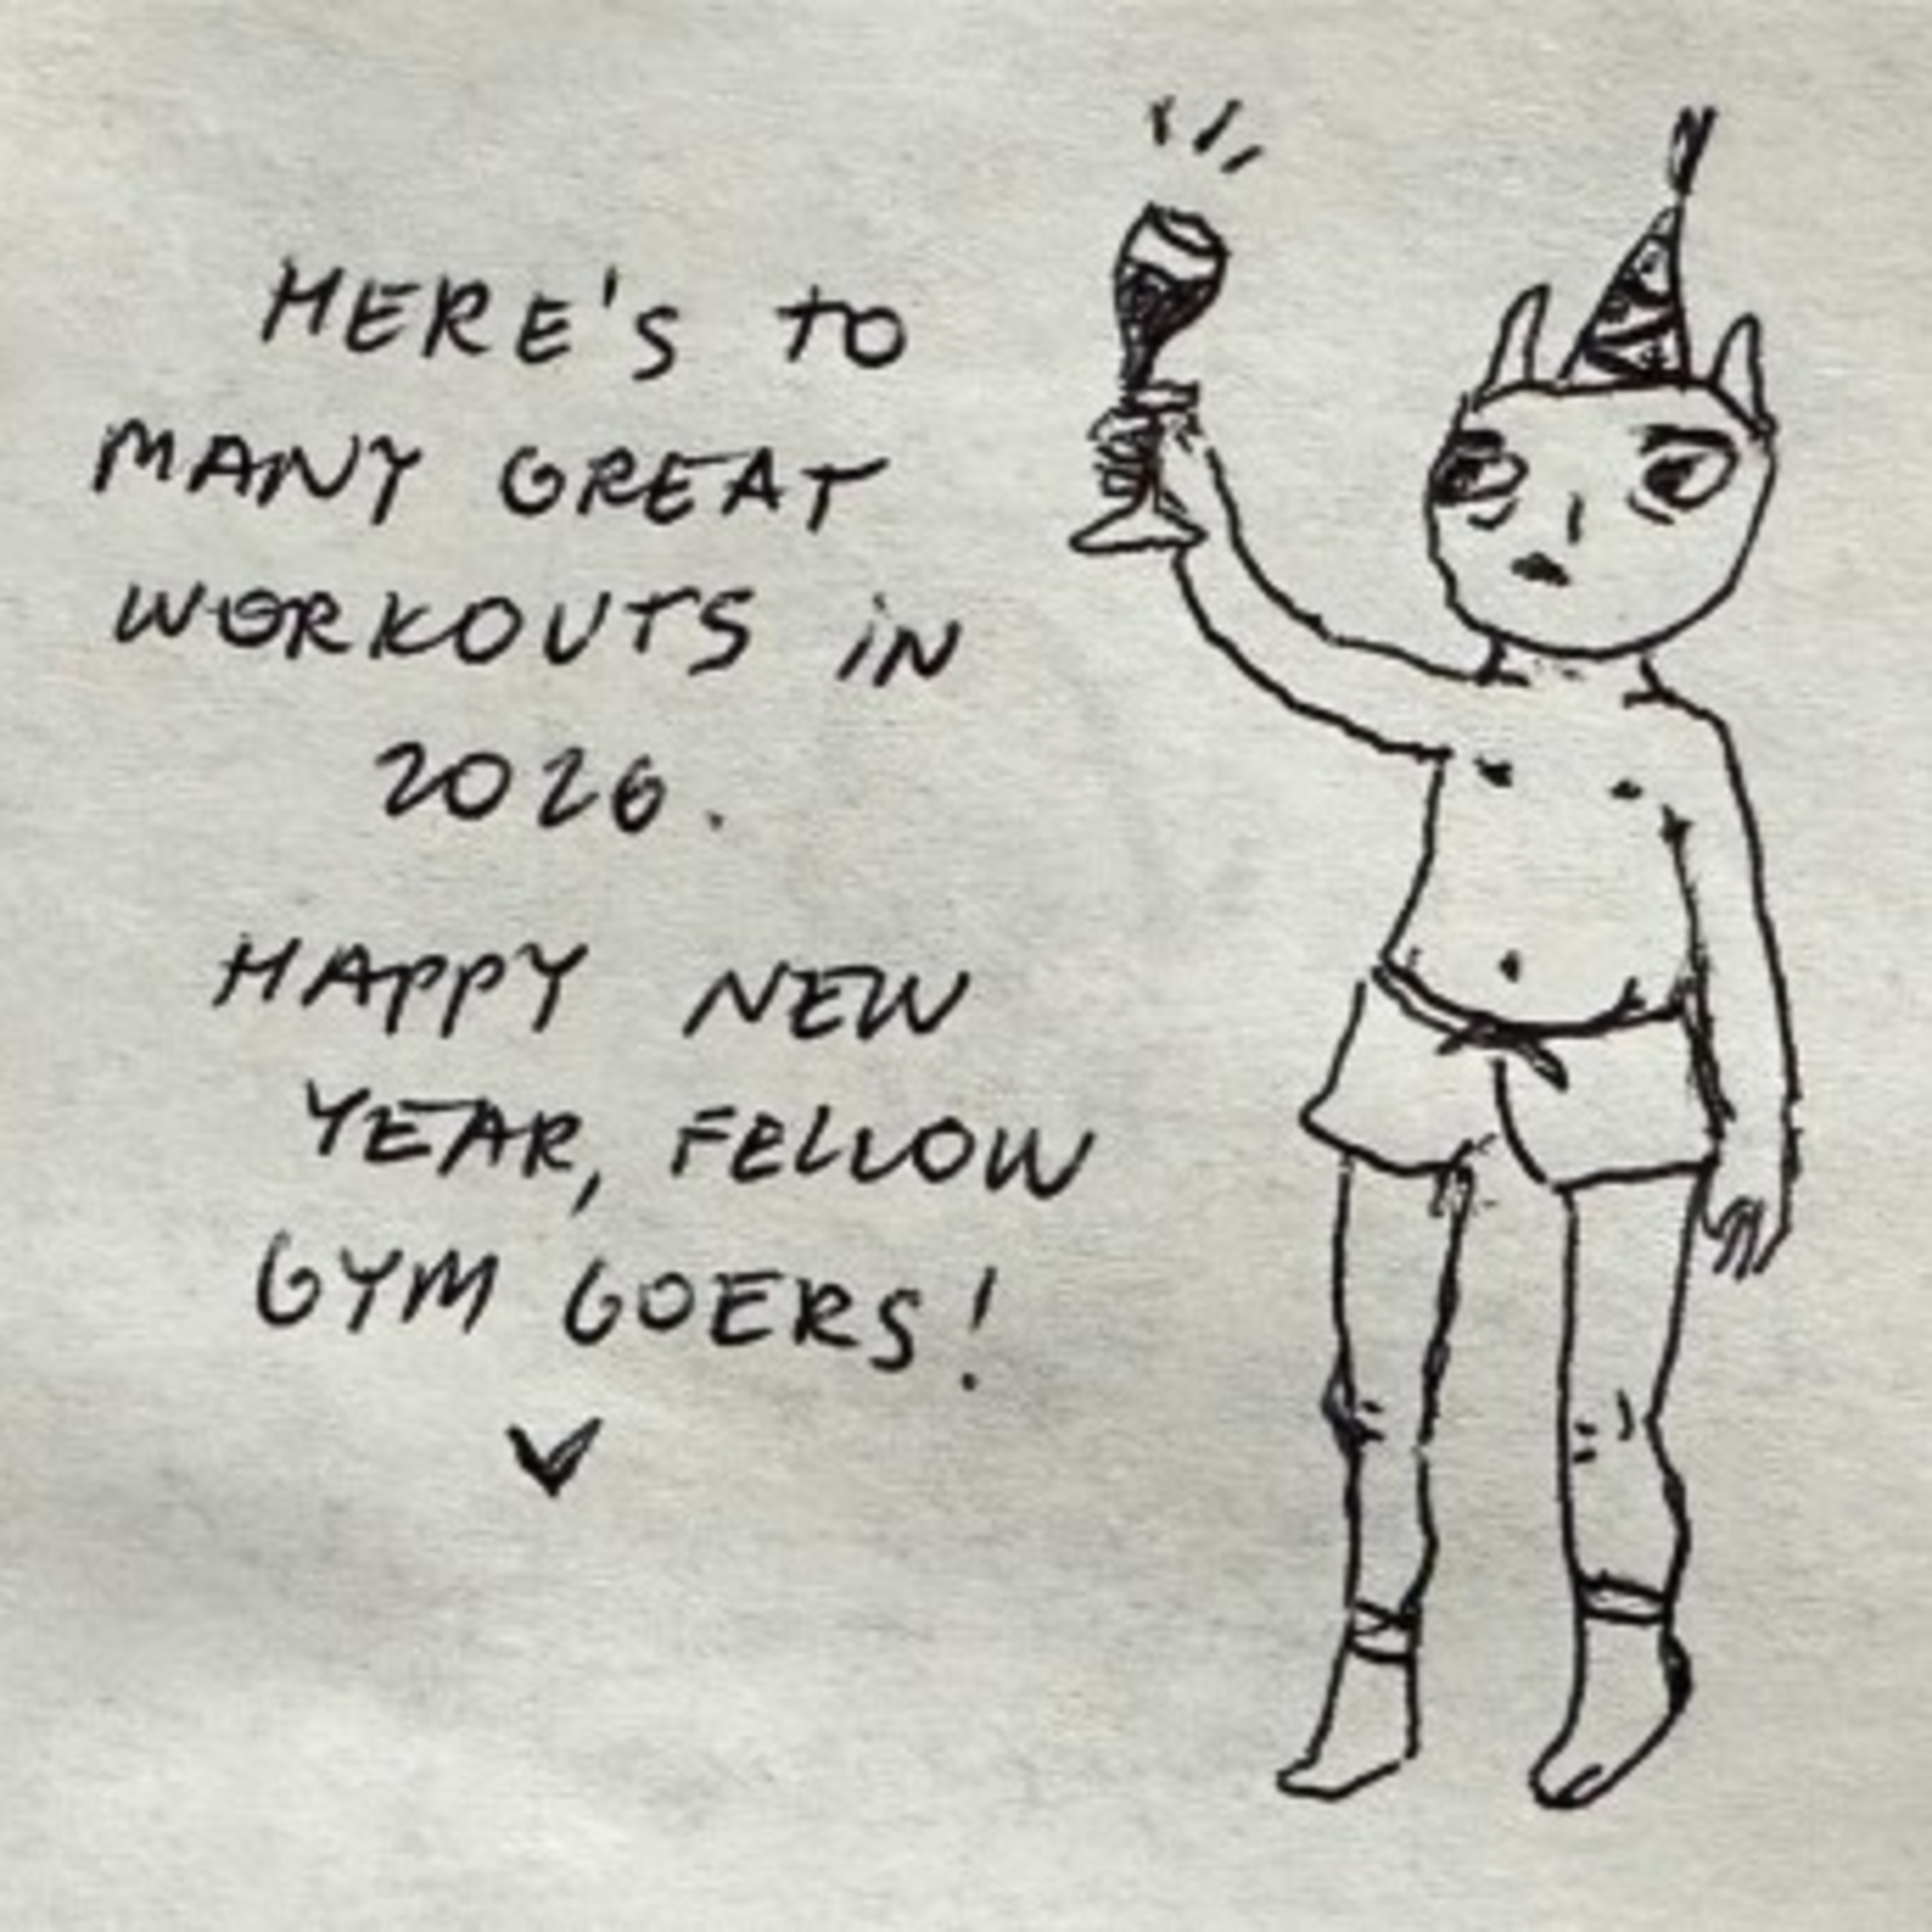 HERE'S TO
MANY GREAT
WORKOUTS IN
2026.
HAPPY NEW
YEAR, FELLOW
GYM GOERS!